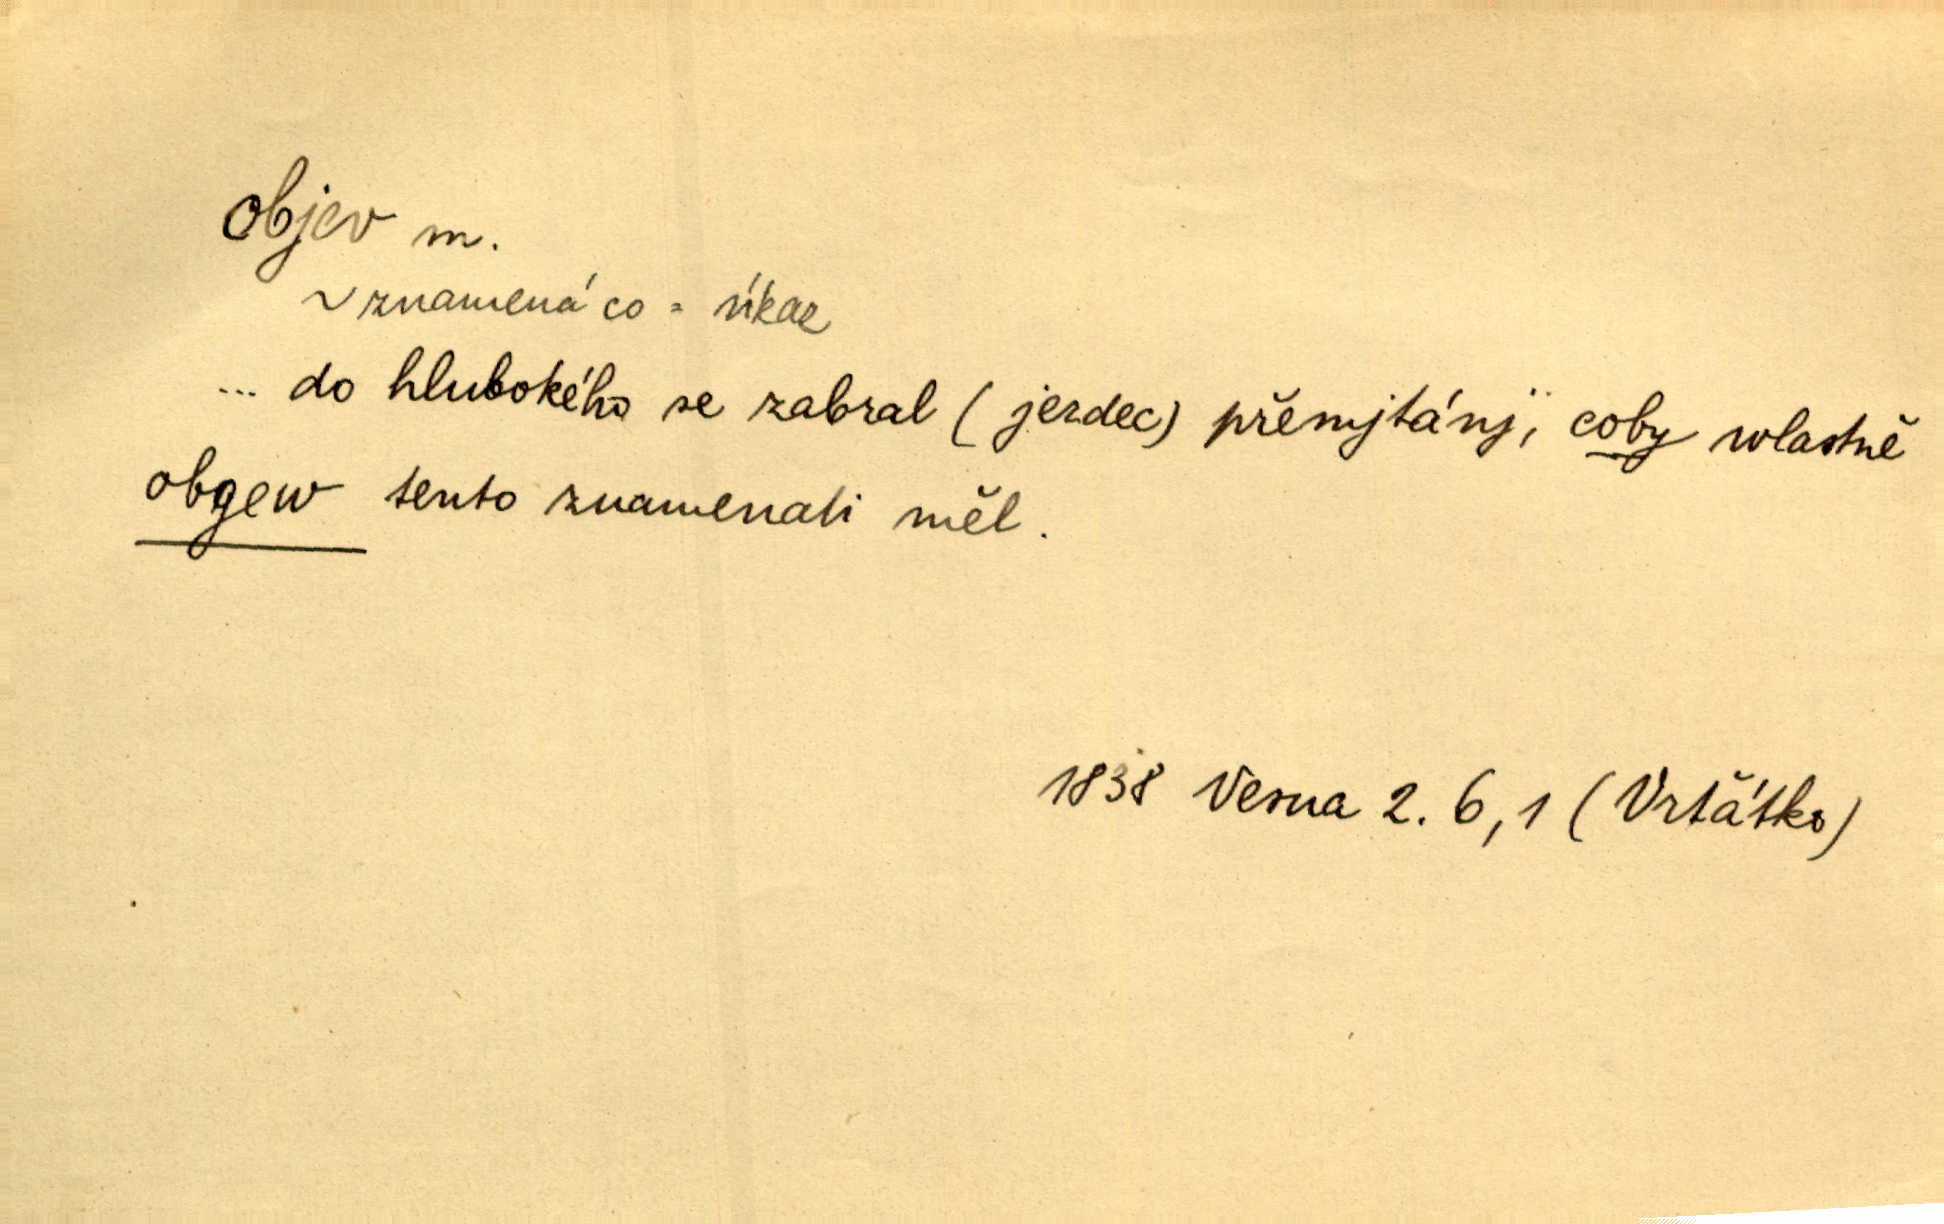 objev m.
~ znamená co = úkaz
... do hlubokého se zabral (jezdec) přemjtánj, coby wlastně
obgew tento znamenati měl.
1838 Vesna 2. 6, 1 (Vrťátko)